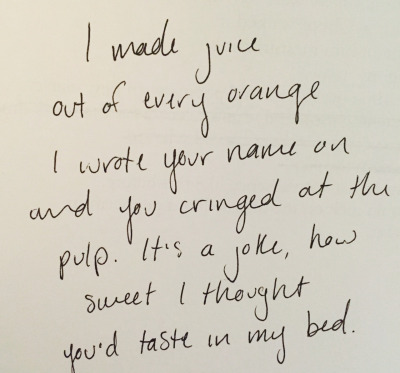 I made juice
out of every orange
I wrote your name on
and you cringed at the
pulp. It's a joke, how
sweet I thought
you'd taste in my bed.